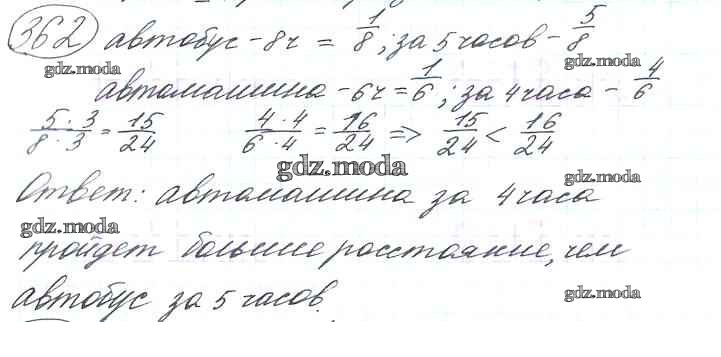 362 автобус - 8ч = 1/8; за 5 часов - 5/8
gdz.moda gdz.moda
автомашина - 6ч = 1/6; за 4 часа - 4/6
5·3/8·3 = 15/24 4·4/6·4 = 16/24 => 15/24 < 16/24
gdz.moda gdz.moda
Ответ: автомашина за 4 часа
gdz.moda
пройдет большие расстояние, чем
автобус за 5 часов.
gdz.moda